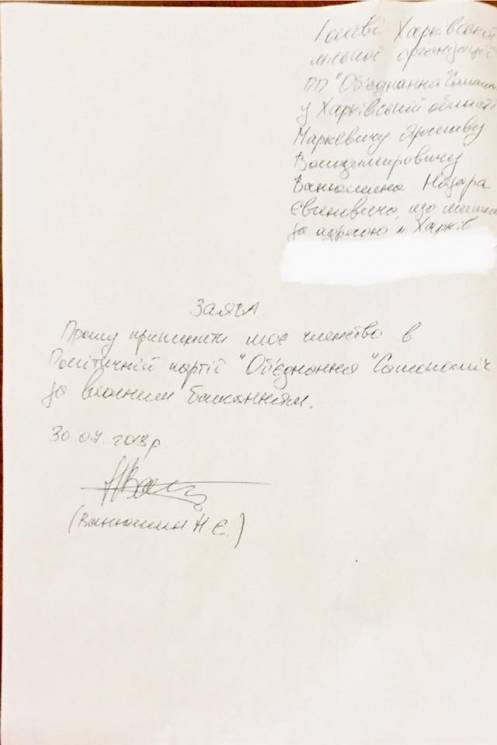 Голові Харківської
міської організації
ПП "Об'єднання "Самопо
у Харківській області
Маркевичу Ярославу
Володимировичу
Ванюшина Назара
Євгеновича, що мешкає
за адресою м. Харків
ЗАЯВА
Прошу припинити моє членство в
Політичній партії "Об'єднання "Самопоміч
за власним бажанням.
30.07.2018р
(Ванюшин Н Є.)